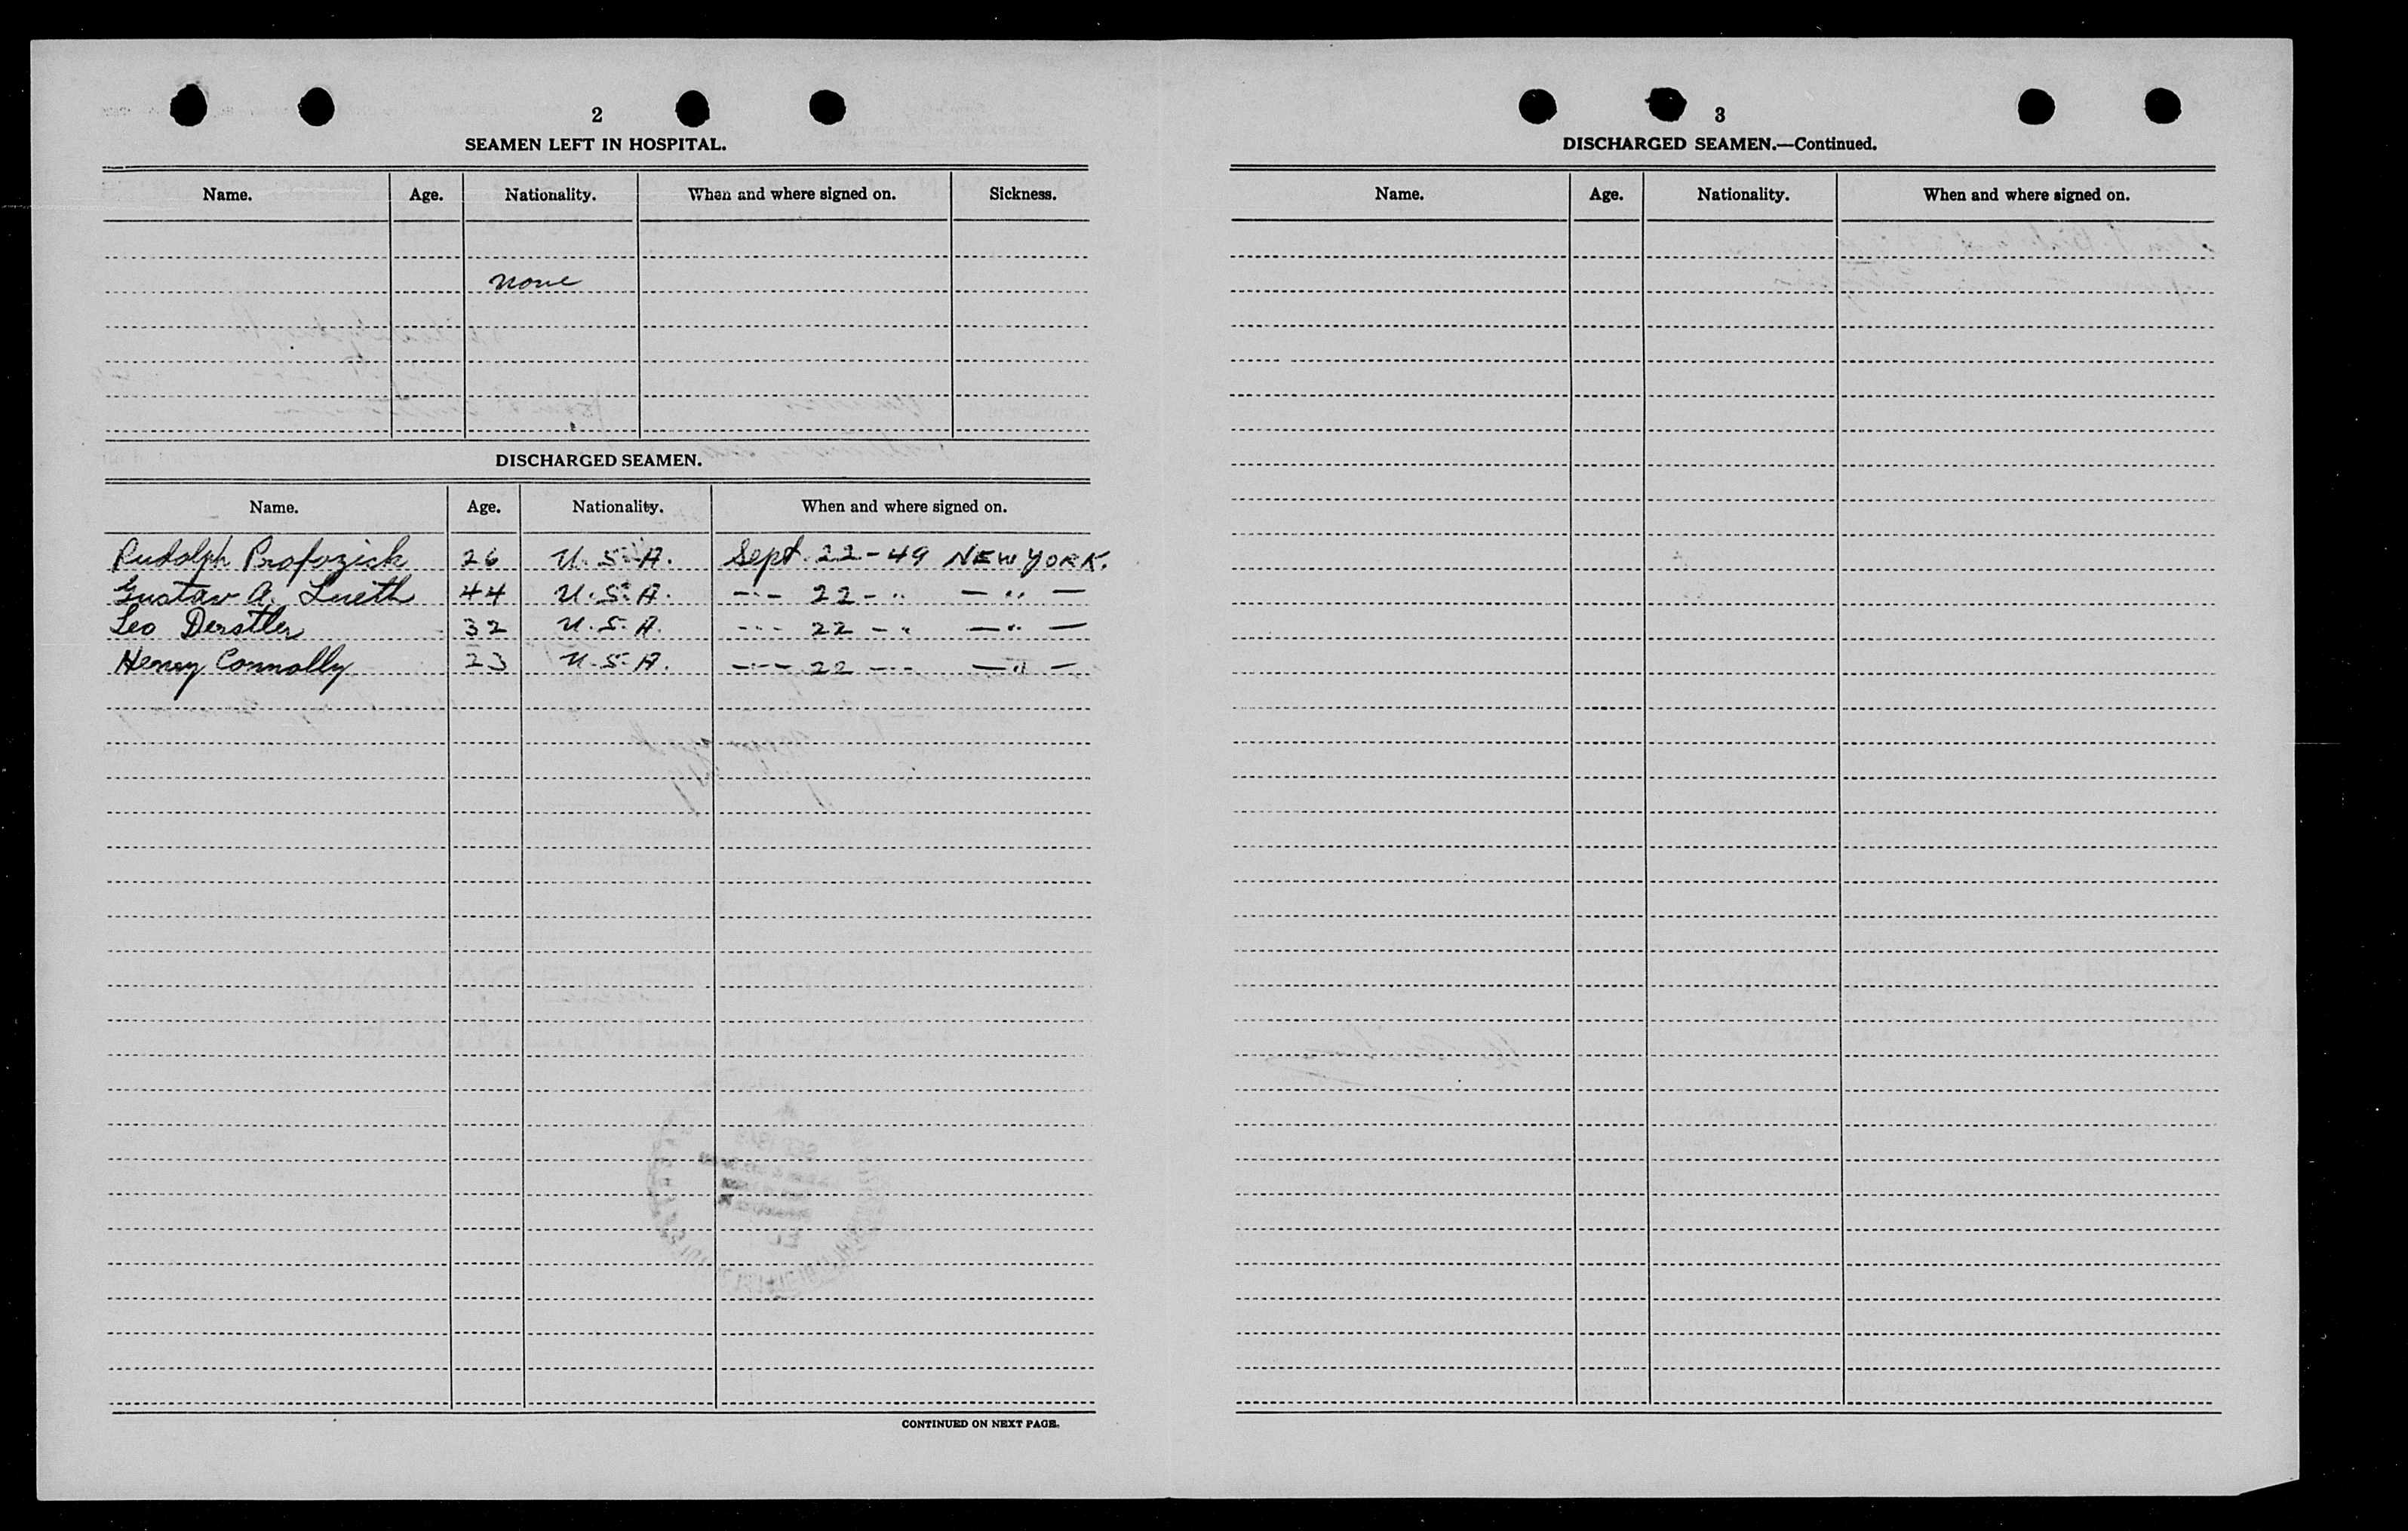 2
SEAMEN LEFT IN HOSPITAL.
Name. Age. Nationality. When and where signed on. Sickness.
none
DISCHARGED SEAMEN.
Name. Age. Nationality. When and where signed on.
Rudolph Profozich 26 U.S.A. Sept. 22-49 NEW YORK.
Gustav A. Lueth 44 U.S.A. -"- 22-" -"-
Leo Derstler 32 U.S.A. -"- 22-" -"-
Henry Connolly 23 U.S.A. -"- 22-"- -"-
CONTINUED ON NEXT PAGE.
3
DISCHARGED SEAMEN.—Continued.
Name. Age. Nationality. When and where signed on.